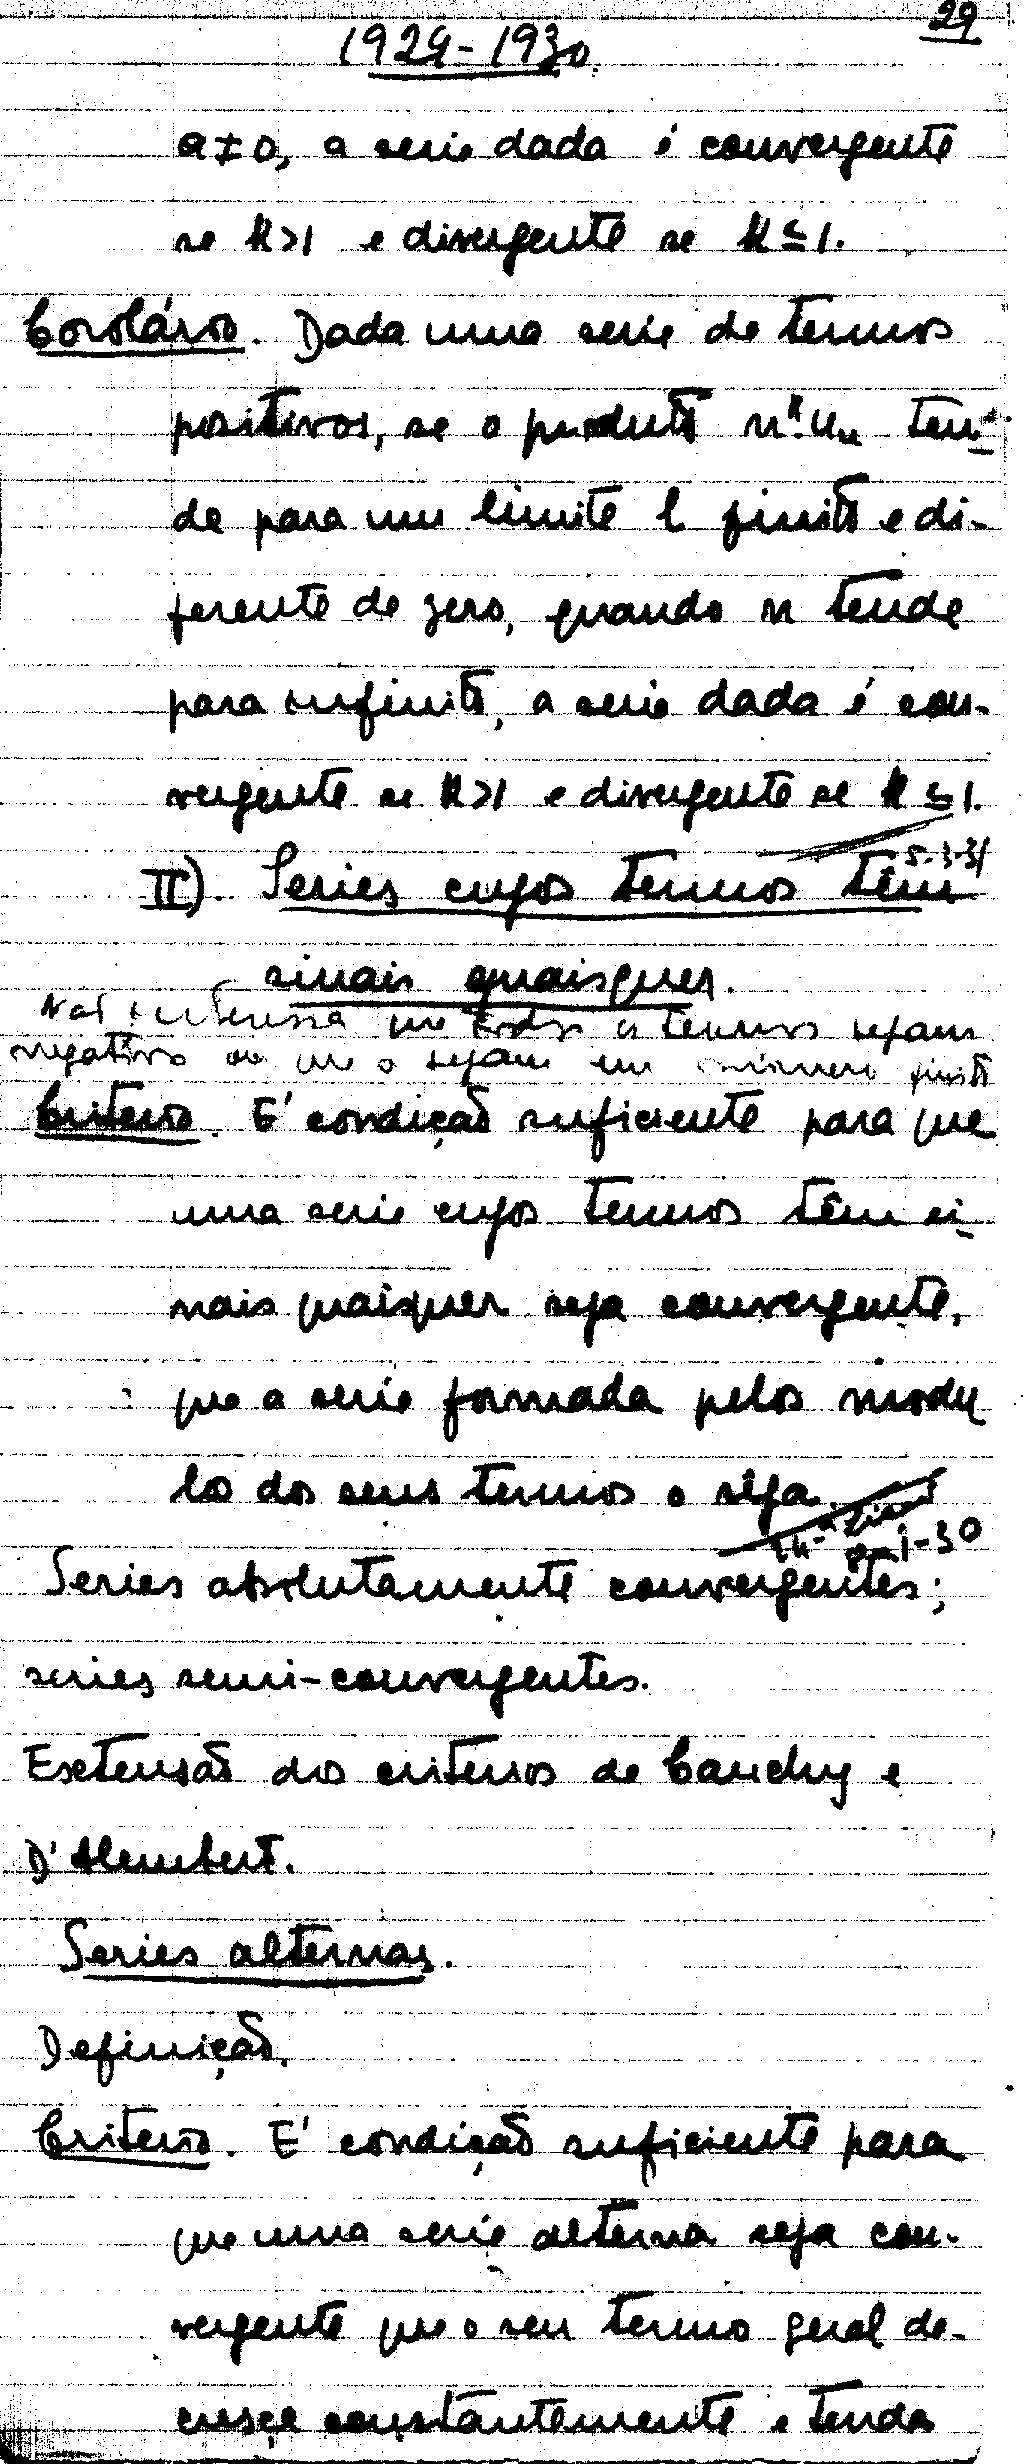 29
1929-1930.
a≠0, a serie dada é convergente
se K>1 e divergente se K≤1.
Corolário. Dada uma serie de termos
positivos, se o produto n^K.u_n ten-
de para um limite l finito e di-
ferente de zero, quando n tende
para infinito, a serie dada é con-
vergente se K>1 e divergente se K≤1.
5-3-31
II) Series cujos termos têm
sinais quaisquer.
Não interessa que todos os termos sejam
negativos ou que o sejam em número finito
Criterio. E' condição suficiente para que
uma serie cujos termos têm si-
nais quaisquer seja convergente,
que a serie formada pelos modu
los dos seus termos o seja.
8-1-30
Series absolutamente convergentes;
series semi-convergentes.
Extensão dos criterios de Cauchy e
D'Alembert.
Series alternas.
Definição.
Criterio. E' condição suficiente para
que uma serie alterna seja con-
vergente que o seu termo geral de-
cresça constantemente e tenda